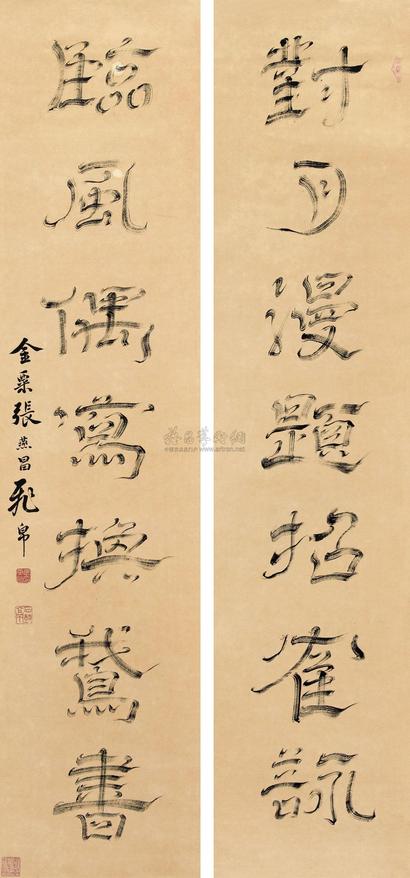 對月漫題招隺詠
臨風偶寫換鵞書
金粟張燕昌飛帛